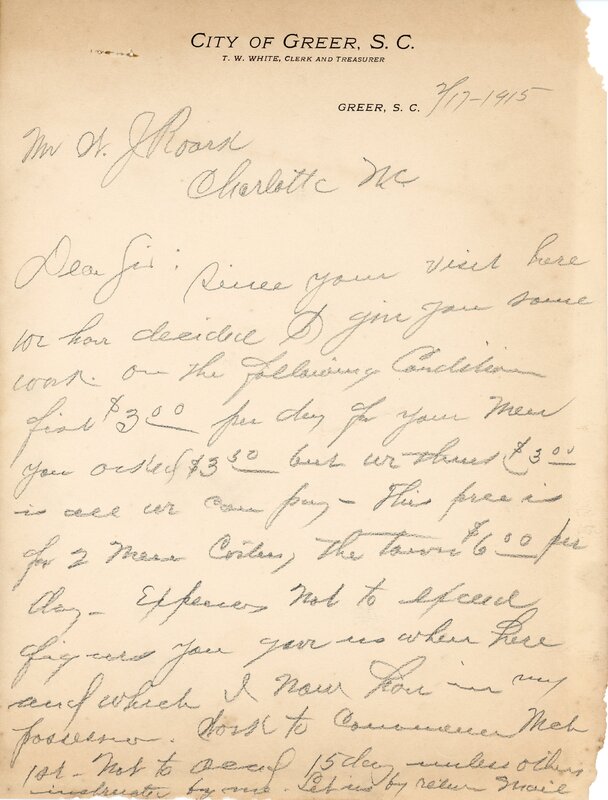 CITY OF GREER, S. C.
T. W. WHITE, CLERK AND TREASURER
GREER, S. C. 2/17-1915
Mr W. J Roark
Charlotte NC
Dear Sir: Since your visit here
we hav decided to giv you some
work on the following Condition
first $3.00 per day for your Men
you asked $3.50 but we think $3.00
is all we can pay - This price is
for 2 Men Costing the town $6.00 per
day - Expences Not to exceed
figures you gave us when here
and which I Now hav in my
possession. Work to Commence Mch
1st - Not to exceed 15 day unless others
instructed by me. Let us by return Mail